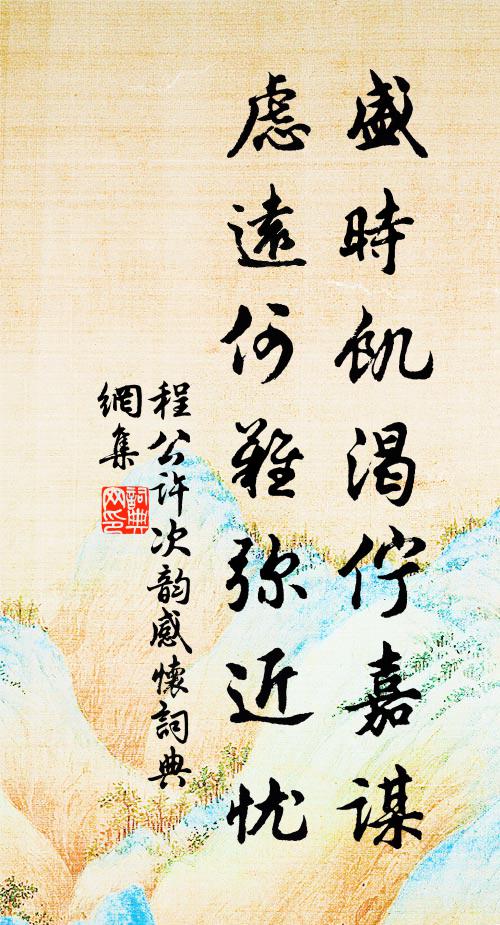 盛時飢渴佇嘉謀
慮遠何難弥近忧
程公许次韵感懷詞典
網集
詞典网印